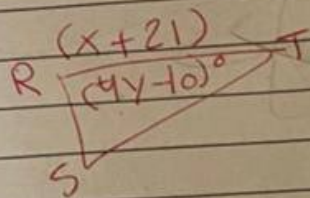 (x+21)
R T
(4y-10)°
S